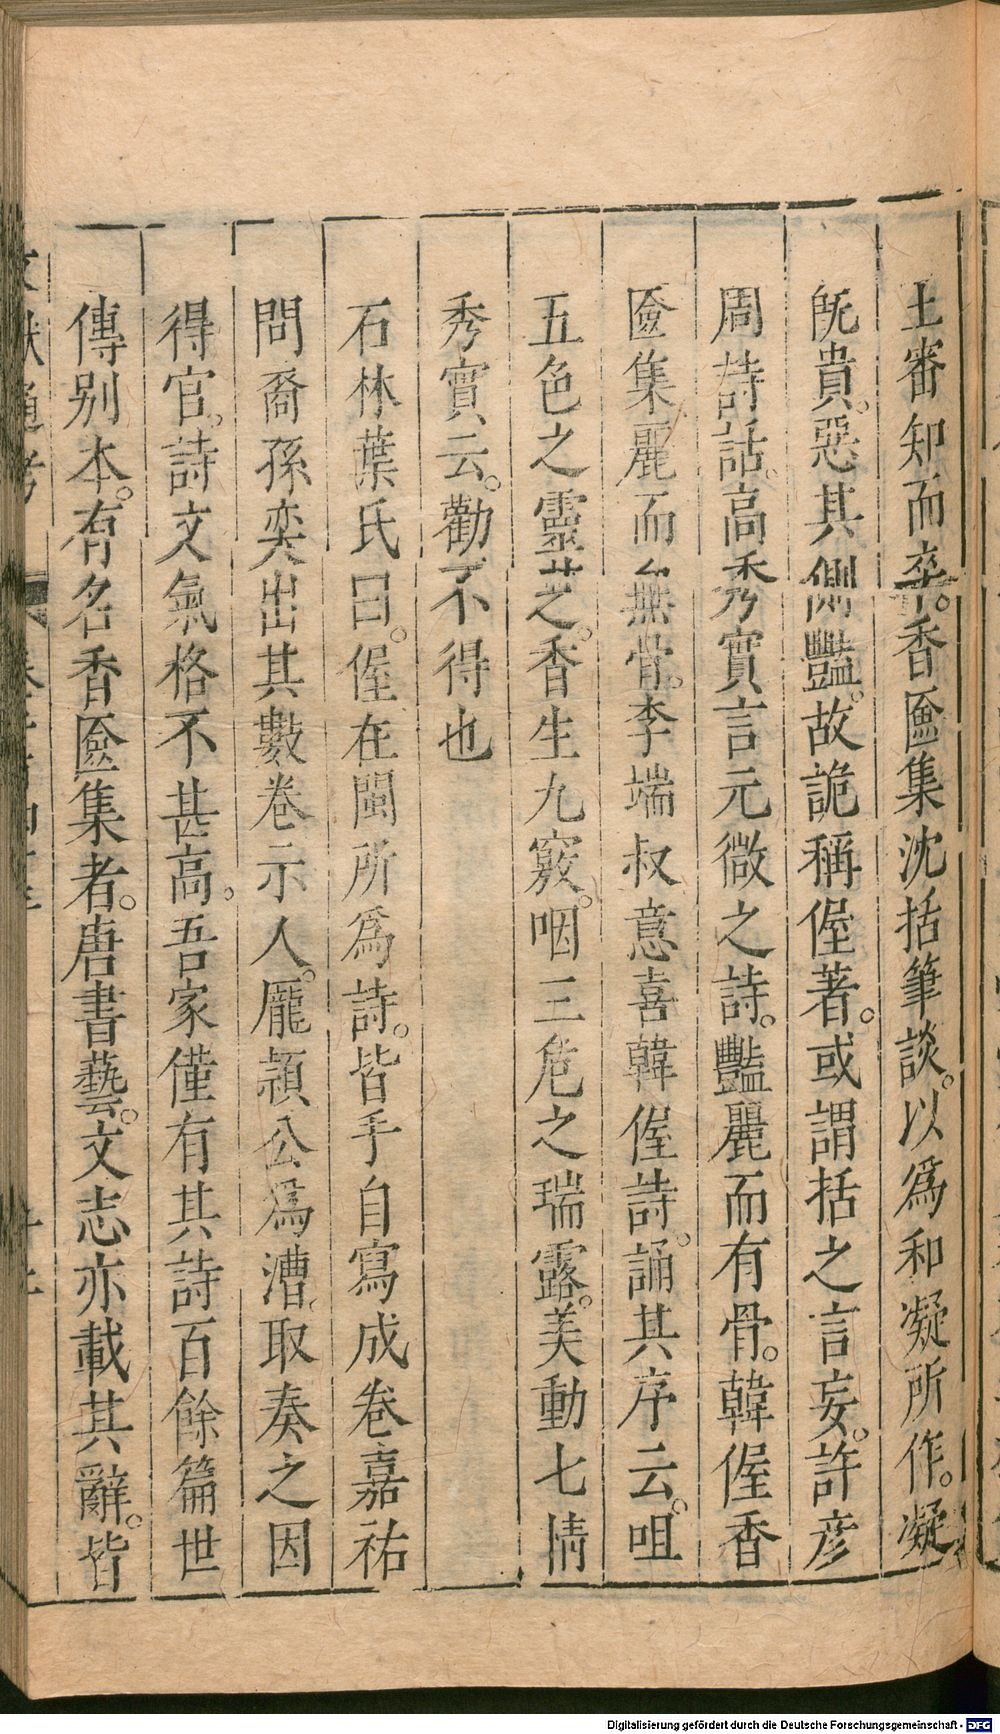 王審知而卒。香匳集沈括筆談。以爲和凝所作。凝
旣貴。惡其側豔。故詭稱偓著。或謂括之言妄。許彦
周詩話。高秀實言元微之詩。豔麗而有骨。韓偓香
匳集麗而無骨。李端叔意喜韓偓詩。誦其序云。咀
五色之靈芝。香生九竅。咽三危之瑞露。美動七情
秀實云。勸不得也
石林葉氏曰。偓在閩所爲詩。皆手自寫成卷嘉祐
問裔孫奕出其數卷示人。龎頴公爲漕。取奏之因
得官。詩文氣格不甚高。吾家僅有其詩百餘篇世
傳別本。有名香匳集者。唐書藝。文志亦載其辭。皆
Digitalisierung gefördert durch die Deutsche Forschungsgemeinschaft - DFG